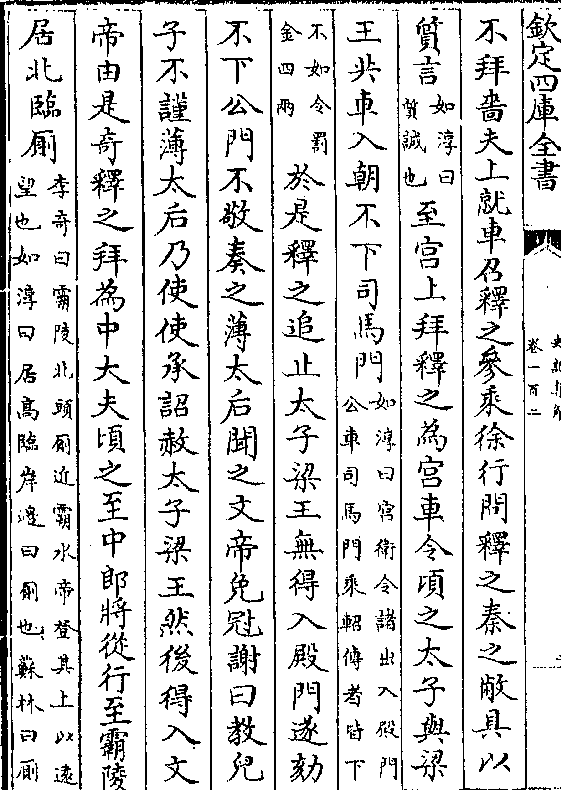 欽定四庫全書
卷一百二
不拜嗇夫上就車召釋之參乘徐行問釋之秦之敝具以
質言如淳曰質誠也至宮上拜釋之為宮車令頃之太子與梁
王共車入朝不下司馬門如淳曰宮衛令諸出入殿門公車司馬門乘軺傳者皆下
不如令罰金四兩於是釋之追止太子梁王無得入殿門遂劾
不下公門不敬奏之薄太后聞之文帝免冠謝曰教兒
子不謹薄太后乃使使承詔赦太子梁王然後得入文
帝由是奇釋之拜為中大夫頃之至中郎將從行至霸陵
居北臨厠李奇曰霸陵北頭厠近霸水帝登其上以遠望也如淳曰居高臨岸邊曰厠也蘇林曰厠